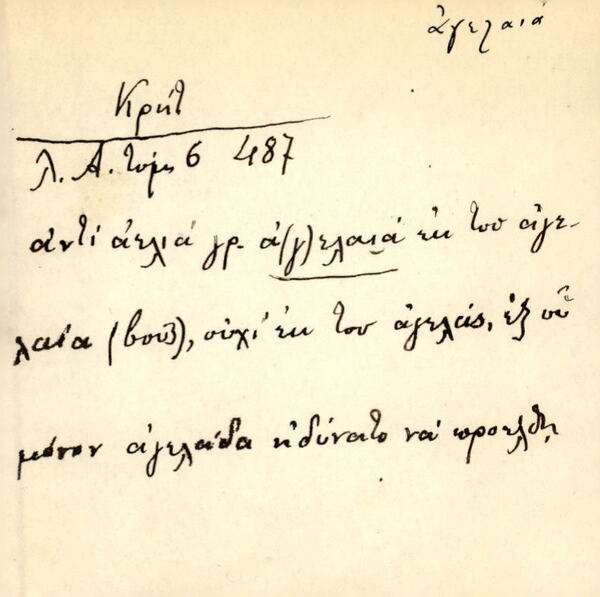 ἀγελαιά
Κρήτ
Λ. Α. τόμ 6 487
ἀντί ἀελιά γρ. ἀ(γ)ελαιά ἐκ του ἀγε-
λαία (βοῦς), οὐχί ἐκ του ἀγελάς, ἐξ οὗ
μόνον ἀγελάδα ἠδύνατο νά προέλθῃ